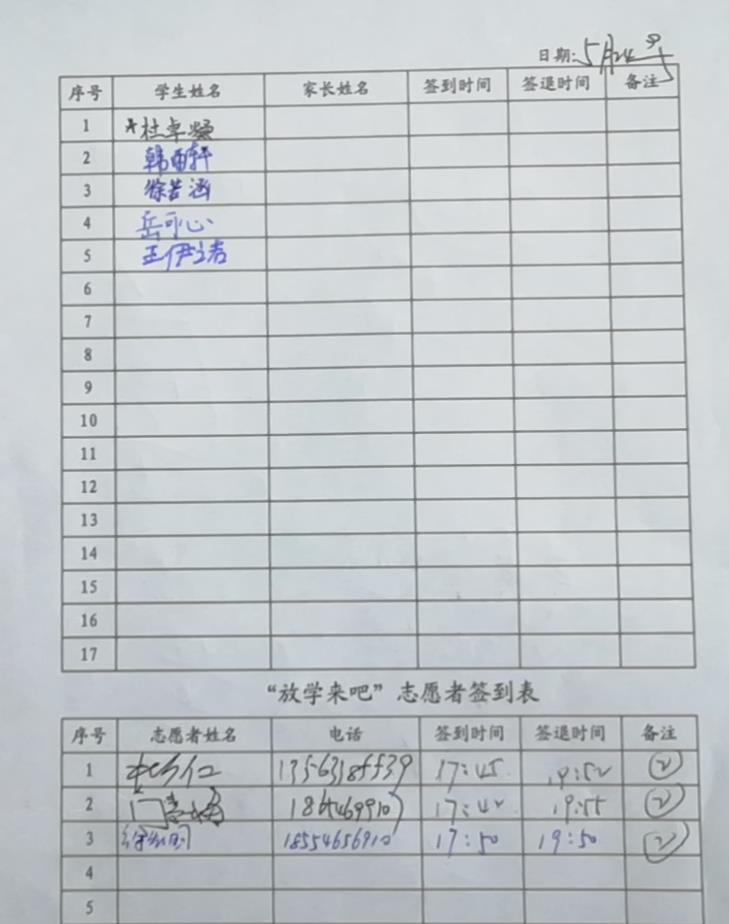 日期: 5月24日
序号 学生姓名 家长姓名 签到时间 签退时间 备注
1 杜卓
2 韩雨轩
3 徐若涵
4 岳可心
5 王伊诺
6
7
8
9
10
11
12
13
14
15
16
17
“放学来吧”志愿者签到表
序号 志愿者姓名 电话 签到时间 签退时间 备注
1 17:45 19:52 ②
2 17:42 19:55 ②
3 18554656910 17:50 19:50 ②
4
5